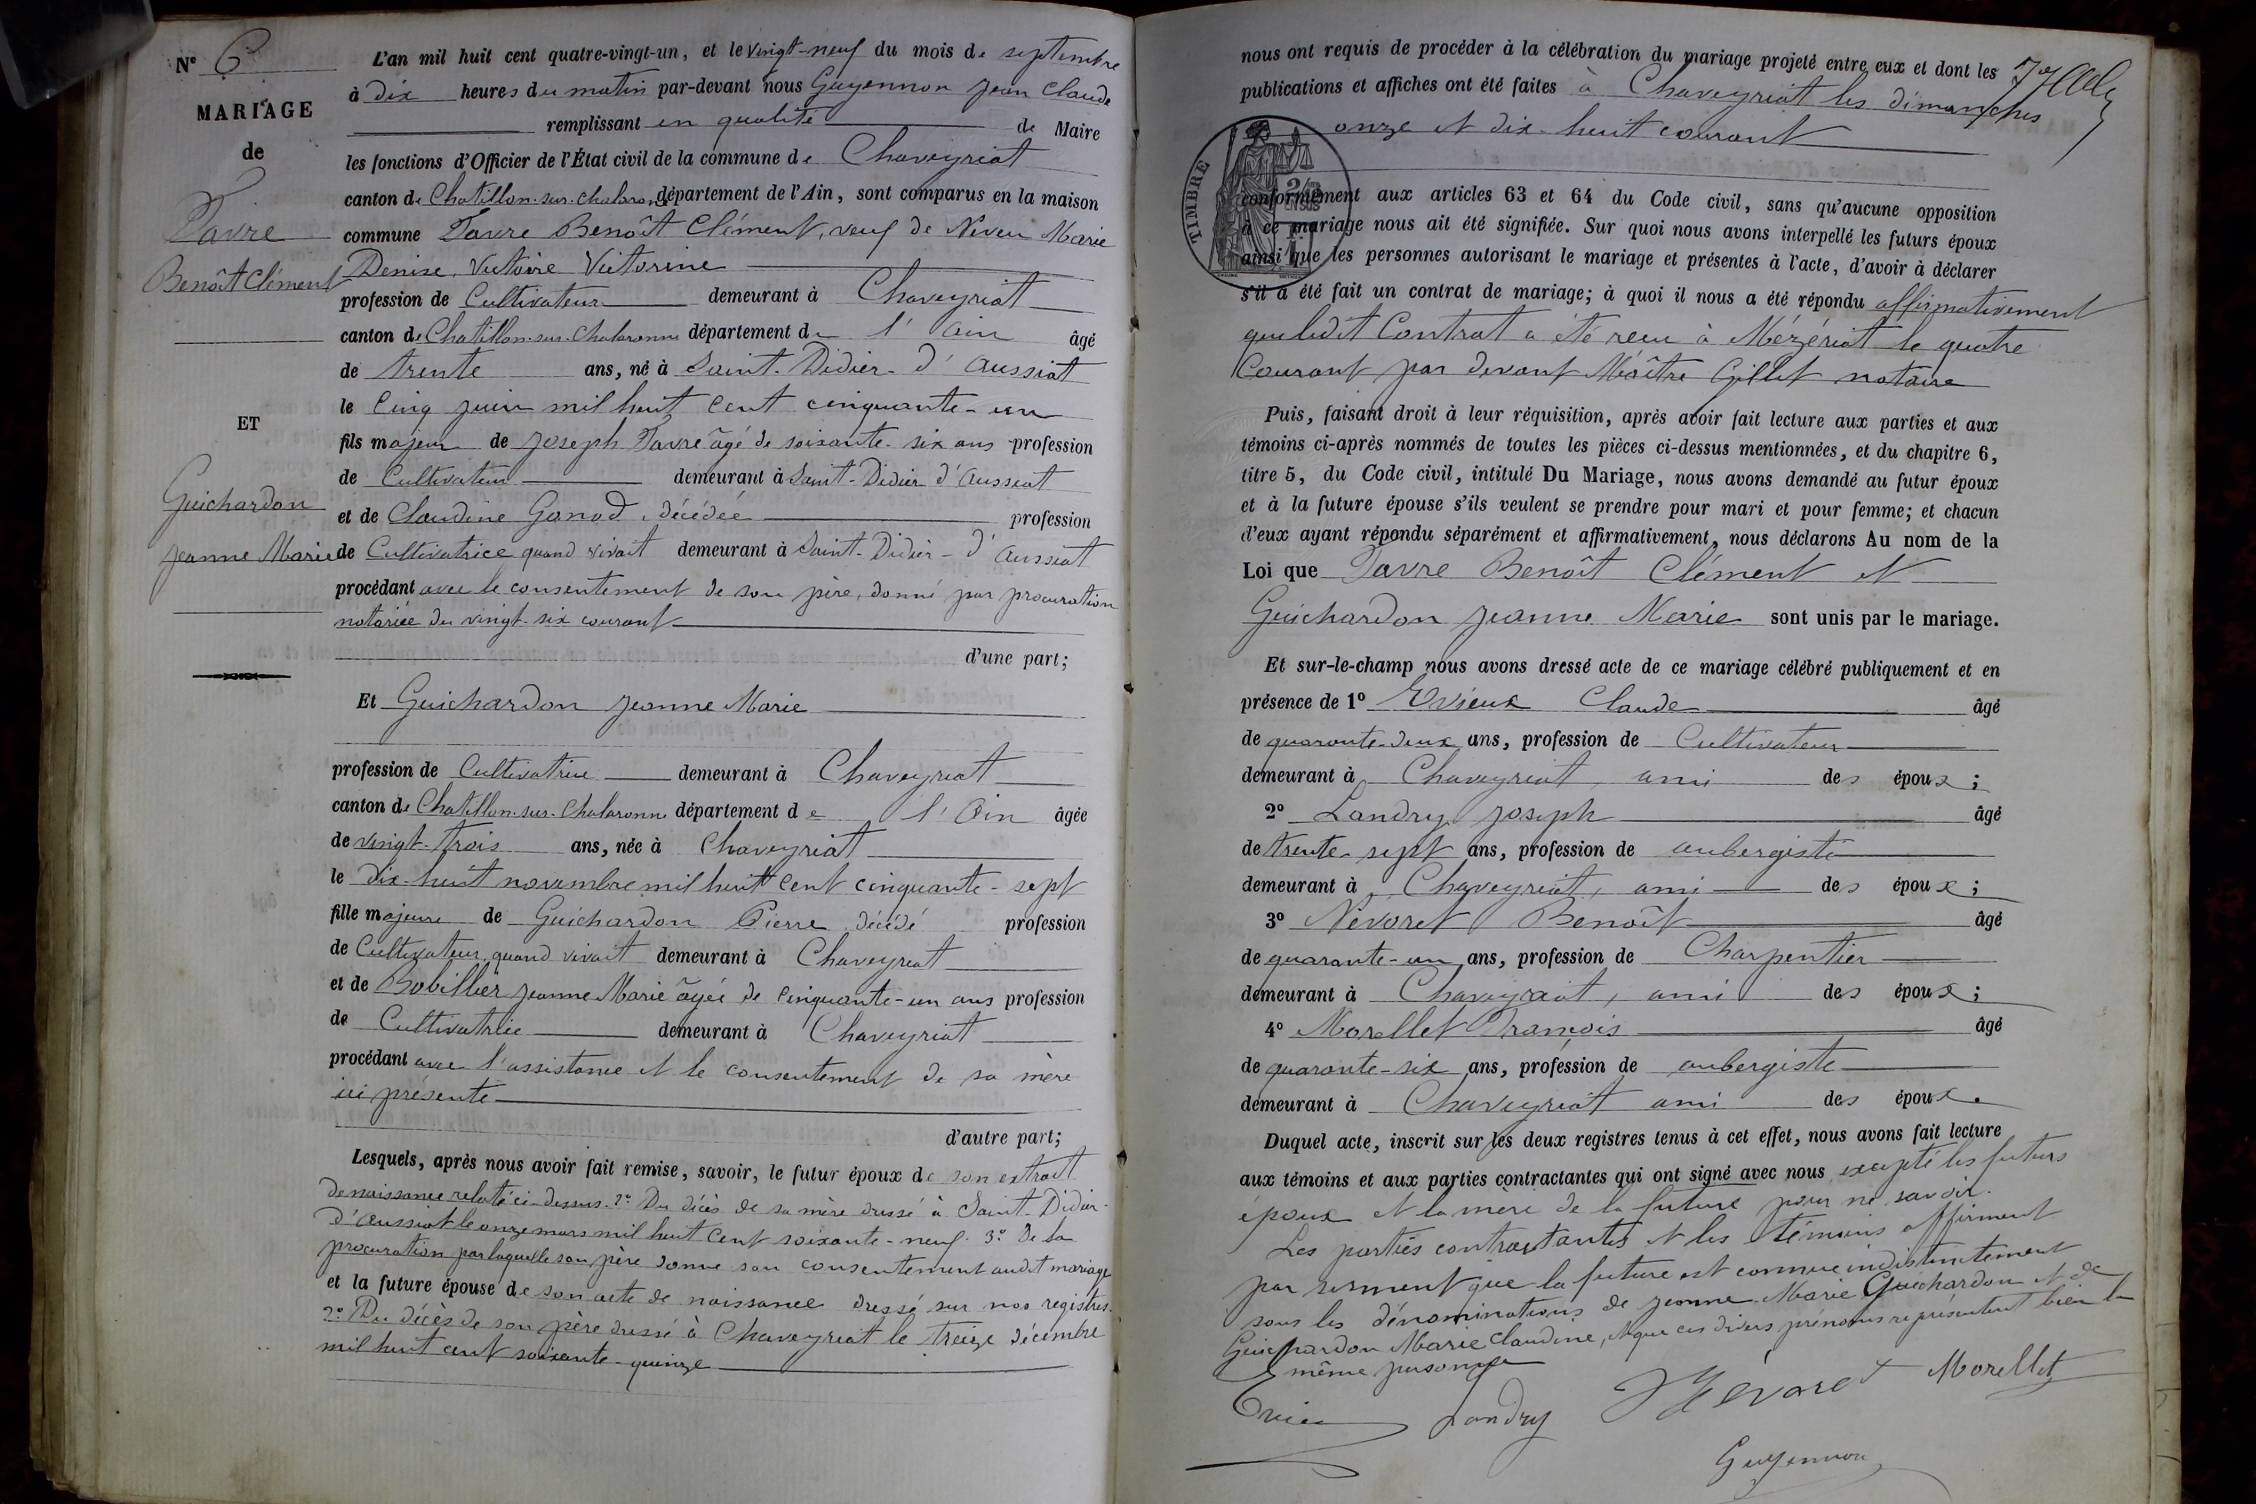 N° 6
MARIAGE
de
Favre
Benoît Clément
ET
Guichardon
Jeanne Marie
L'an mil huit cent quatre-vingt-un, et le vingt-neuf du mois de septembre
à dix heures du matin par-devant nous Guyennon Jean Claude
remplissant en qualité de Maire
les fonctions d'Officier de l'État civil de la commune de Chaveyriat
canton de Chatillon-sur-chalaronne département de l'Ain, sont comparus en la maison
commune Favre Benoît Clément, veuf de Neveu Marie
Denise Victoire Victorine
profession de Cultivateur demeurant à Chaveyriat
canton de Chatillon-sur-Chalaronne département de l'Ain âgé
de trente ans, né à Saint-Didier-d'Aussiat
le cinq juin mil huit cent cinquante-un
fils majeur de Joseph Favre âgé de soixante-six ans profession
de Cultivateur demeurant à Saint-Didier d'Aussiat
et de Claudine Ganod, décédée profession
de Cultivatrice quand vivait demeurant à Saint-Didier-d'Aussiat
procédant avec le consentement de son père, donné par procuration
notariée du vingt-six courant
d'une part;
Et Guichardon Jeanne Marie
profession de Cultivatrice demeurant à Chaveyriat
canton de Chatillon-sur-Chalaronne département de l'Ain âgée
de vingt-trois ans, née à Chaveyriat
le dix-huit novembre mil huit cent cinquante-sept
fille majeure de Guichardon Pierre, décédé profession
de Cultivateur, quand vivait demeurant à Chaveyriat
et de Bobillier Jeanne Marie âgée de cinquante-un ans profession
de Cultivatrice demeurant à Chaveyriat
procédant avec l'assistance et le consentement de sa mère
ici présente
d'autre part;
Lesquels, après nous avoir fait remise, savoir, le futur époux de son extrait
de naissance relaté ci-dessus. 2° Du décès de sa mère dressé à Saint-Didier-
d'Aussiat le onze mars mil huit cent soixante-neuf. 3° De la
procuration par laquelle son père donne son consentement audit mariage
et la future épouse de son acte de naissance dressé sur nos registres.
2° Du décès de son père dressé à Chaveyriat le treize décembre
mil huit cent soixante-quinze
nous ont requis de procéder à la célébration du mariage projeté entre eux et dont les
publications et affiches ont été faites à Chaveyriat les dimanches
onze et dix-huit courant
TIMBRE
conformément aux articles 63 et 64 du Code civil, sans qu'aucune opposition
à ce mariage nous ait été signifiée. Sur quoi nous avons interpellé les futurs époux
ainsi que les personnes autorisant le mariage et présentes à l'acte, d'avoir à déclarer
s'il a été fait un contrat de mariage; à quoi il nous a été répondu affirmativement
que ledit Contrat a été reçu à Mézériat le quatre
Courant par devant Maître Gillet notaire
Puis, faisant droit à leur réquisition, après avoir fait lecture aux parties et aux
témoins ci-après nommés de toutes les pièces ci-dessus mentionnées, et du chapitre 6,
titre 5, du Code civil, intitulé Du Mariage, nous avons demandé au futur époux
et à la future épouse s'ils veulent se prendre pour mari et pour femme; et chacun
d'eux ayant répondu séparément et affirmativement, nous déclarons Au nom de la
Loi que Favre Benoît Clément et
Guichardon Jeanne Marie sont unis par le mariage.
Et sur-le-champ nous avons dressé acte de ce mariage célébré publiquement et en
présence de 1° Evieux Claude âgé
de quarante-deux ans, profession de Cultivateur
demeurant à Chaveyriat, ami des époux;
2° Landry Joseph âgé
de trente-sept ans, profession de aubergiste
demeurant à Chaveyriat, ami des époux;
3° Névoret Benoît âgé
de quarante-un ans, profession de Charpentier
demeurant à Chaveyriat, ami des époux;
4° Morellet François âgé
de quarante-six ans, profession de aubergiste
demeurant à Chaveyriat ami des époux.
Duquel acte, inscrit sur les deux registres tenus à cet effet, nous avons fait lecture
aux témoins et aux parties contractantes qui ont signé avec nous excepté les futurs
époux et la mère de la future pour ne savoir.
Les parties contractantes et les témoins affirment
par serment que la future est connue indistinctement
sous les dénominations de Jeanne-Marie Guichardon et de
Guichardon Marie Claudine, et que ces divers prénoms représentent bien la
même personne
Evieu Landry Névoret Morellet
Guyennon